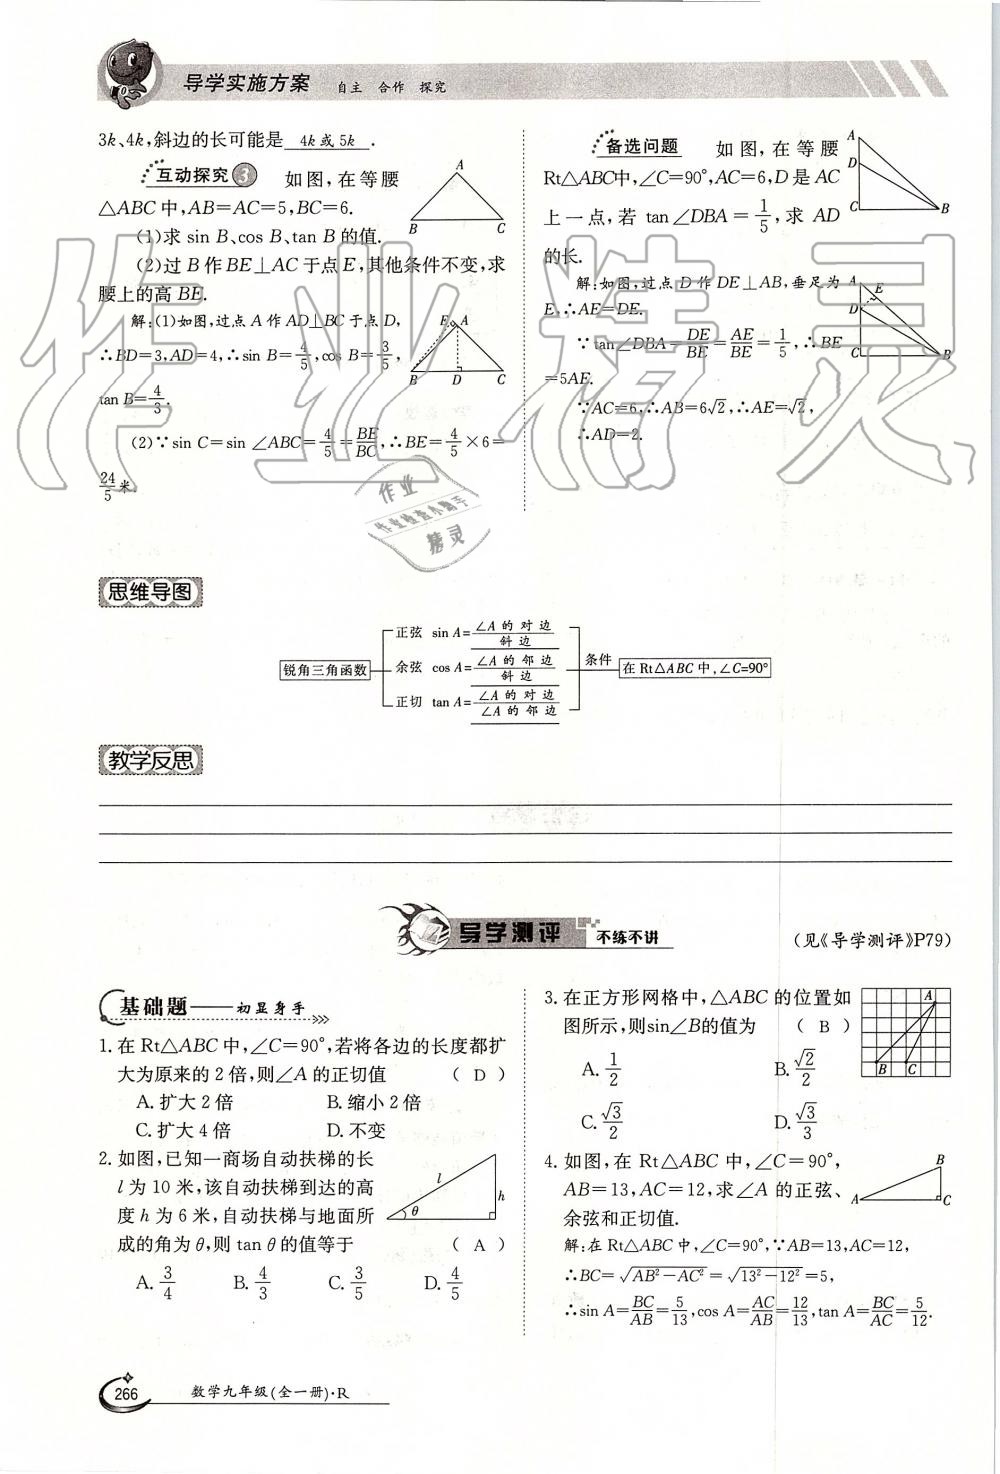 导学实施方案 自主 合作 探究
3k、4k,斜边的长可能是 4k 或 5k .
互动探究 3 如图,在等腰
△ABC 中,AB=AC=5,BC=6.
(1)求 sin B、cos B、tan B 的值.
(2)过 B 作 BE⊥AC 于点 E,其他条件不变,求
腰上的高 BE.
解:(1)如图,过点 A 作 AD⊥BC 于点 D,
∴BD=3,AD=4,∴sin B=4/5,cos B=3/5,
tan B=4/3.
(2)∵sin C=sin ∠ABC=4/5=BE/BC,∴BE=4/5×6=
24/5米.
A
B
C
E
A
B
D
C
备选问题 如图,在等腰
Rt△ABC中,∠C=90°,AC=6,D 是 AC
上一点,若 tan∠DBA=1/5,求 AD
的长.
解:如图,过点 D 作 DE⊥AB,垂足为
E,∴AE=DE.
∵tan∠DBA=DE/BE=AE/BE=1/5,∴BE
=5AE.
∵AC=6,∴AB=6√2,∴AE=√2,
∴AD=2.
A
D
C
B
A
E
D
C
B
作业精灵
作业
作业检查小助手
精灵
思维导图
锐角三角函数
正弦 sin A=∠A 的 对 边/斜 边
余弦 cos A=∠A 的 邻 边/斜 边
正切 tan A=∠A 的 对 边/∠A 的 邻 边
条件
在 Rt△ABC 中,∠C=90°
教学反思
导学测评 不练不讲
(见《导学测评》P79)
基础题——初显身手
1. 在 Rt△ABC 中,∠C=90°,若将各边的长度都扩
大为原来的 2 倍,则∠A 的正切值 ( D )
A. 扩大 2 倍 B. 缩小 2 倍
C. 扩大 4 倍 D. 不变
2. 如图,已知一商场自动扶梯的长
l 为 10 米,该自动扶梯到达的高
度 h 为 6 米,自动扶梯与地面所
成的角为 θ,则 tan θ 的值等于 ( A )
A. 3/4 B. 4/3 C. 3/5 D. 4/5
l
h
θ
3. 在正方形网格中,△ABC 的位置如
图所示,则sin∠B的值为 ( B )
A. 1/2 B. √2/2
C. √3/2 D. √3/3
A
B
C
4. 如图,在 Rt△ABC 中,∠C=90°,
AB=13,AC=12,求∠A 的正弦、
余弦和正切值.
解:在 Rt△ABC 中,∠C=90°,∵AB=13,AC=12,
∴BC=√AB²-AC²=√13²-12²=5,
∴sin A=BC/AB=5/13,cos A=AC/AB=12/13,tan A=BC/AC=5/12.
B
A
C
266 数学九年级(全一册)·R